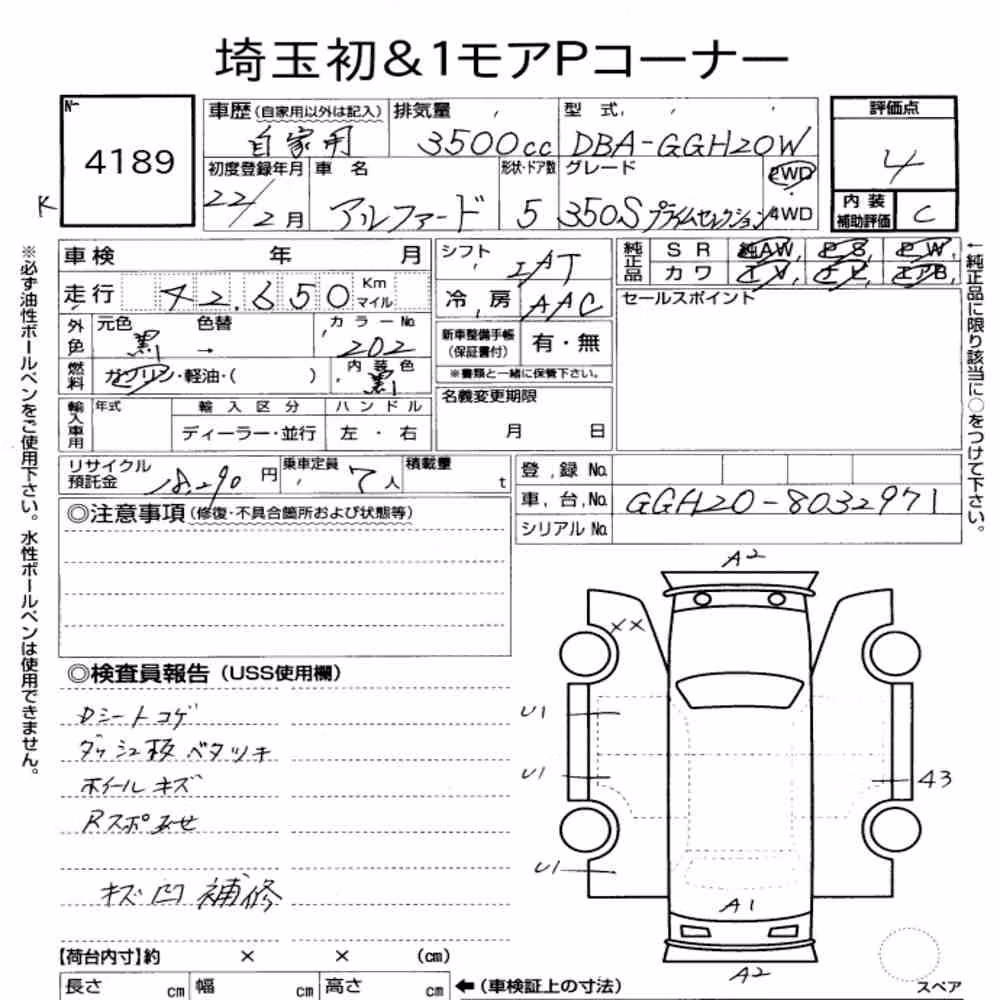 埼玉初&1モアPコーナー
No.
4189
K
車歴(自家用以外は記入) 排気量 型式
自家用 3500cc DBA-GGH20W
初度登録年月 車名 形状・ドア数 グレード 2WD
22/2月 アルファード 5 350S プライムセレクション 4WD
評価点
4
内装補助評価 C
車検 年 月
走行 42,650 Km マイル
外色 元色 色替 カラーNo.
黒 → 202
燃料 ガソリン・軽油・( ) 内装色 黒
輸入車用 年式 輸入区分 ハンドル
ディーラー・並行 左・右
シフト IAT
冷房 AAC
新車整備手帳(保証書付) 有・無
※書類と一緒に保管下さい。
名義変更期限
月 日
純正品 SR 純AW PS PW
カワ TV ナビ エアB
セールスポイント
←純正品に限り該当に○をつけて下さい。
※必ず油性ボールペンをご使用下さい。水性ボールペンは使用できません。
リサイクル預託金 18,290円 乗車定員 7人 積載量 t
登録No.
車台No. GGH20-8032971
シリアルNo.
◎注意事項(修復・不具合箇所および状態等)
◎検査員報告(USS使用欄)
Dシートコゲ
ダッシュ板ベタツキ
ホイールキズ
キズ凹補修
A2
××
U1
U1
43
U1
A1
A2
スペア
【荷台内寸】約 × × (cm)
長さ cm 幅 cm 高さ cm ←(車検証上の寸法)